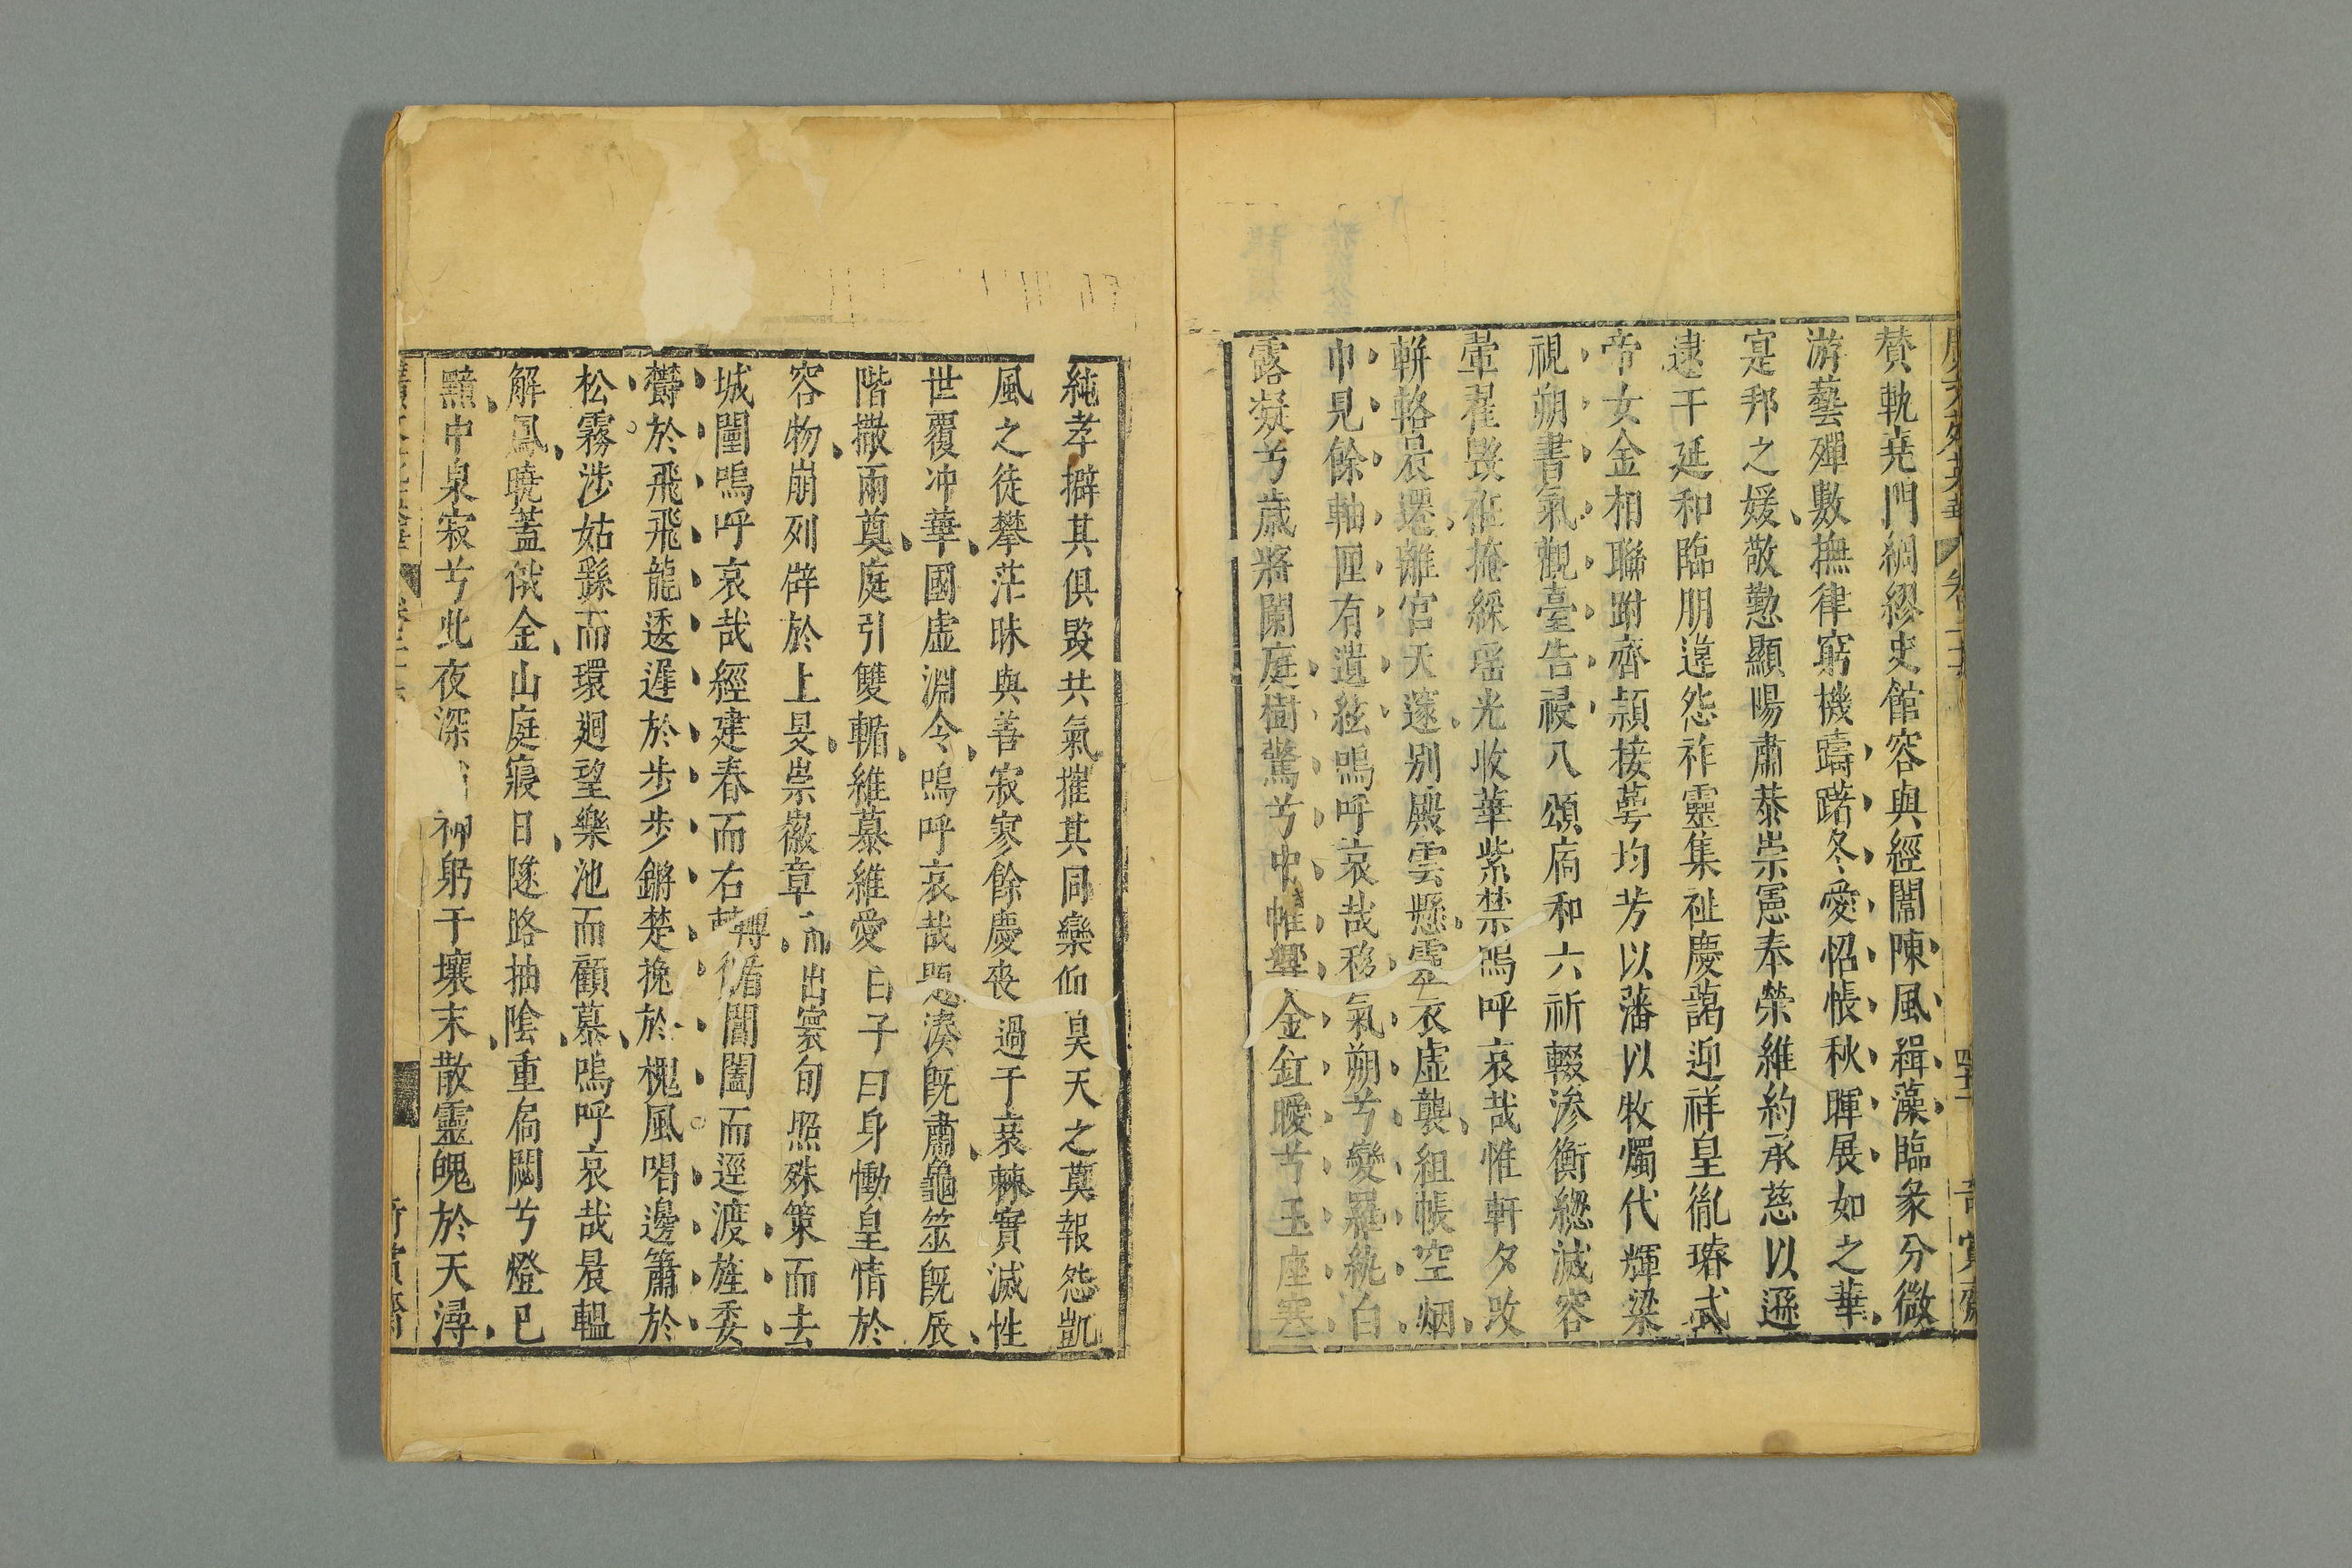 贊軌堯門綢繆史館容與經闈陳風緝藻臨彖分微
游藝殫數撫律窮機躊躇冬愛怊悵秋暉展如之華
寔邦之媛敬勤顯陽肅恭崇憲奉榮維約承慈以遜
逮下延和臨朋違怨祚靈集祉慶藹迎祥皇胤璿式
帝女金相聯跗齊頴接萼均芳以藩以牧燭代輝梁
視朔書氣觀臺告祲八頌扃和六祈輟滲衡緫滅容
翬翟毀衽掩綵瑶光收華紫禁嗚呼哀哉惟軒夕改
輧輅晨遷離宫天邃别殿雲懸靈衣虚襲組帳空烟
巾見餘軸匣有遺絃嗚呼哀哉移氣朔兮變羅紈白
露凝兮歳將闌庭樹驚兮中帷響金釭曖兮玉座寒
純孝擗其俱毀共氣摧其同欒仰昊天之莫報怨凱
風之徒攀茫昧與善寂寥餘慶喪過于哀棘實滅性
世覆冲華國虚淵令嗚呼哀哉題湊旣肅龜筮旣辰
階撒兩奠庭引雙輴維慕維愛曰子曰身慟皇情於
容物崩列辟於上旻崇徽章而出寰甸照殊策而去
城闉嗚呼哀哉經建春而右轉循閶闔而逕渡旌委
欝於飛飛龍逶遲於步步鏘楚挽於槐風唱邊簫於
松霧涉姑繇而環廻望樂池而顧慕嗚呼哀哉晨轀
解鳳曉蓋俄金山庭寢日隧路抽陰重扃閟兮燈已
黯中泉寂兮此夜深 神躬于壤末散靈魄於天潯